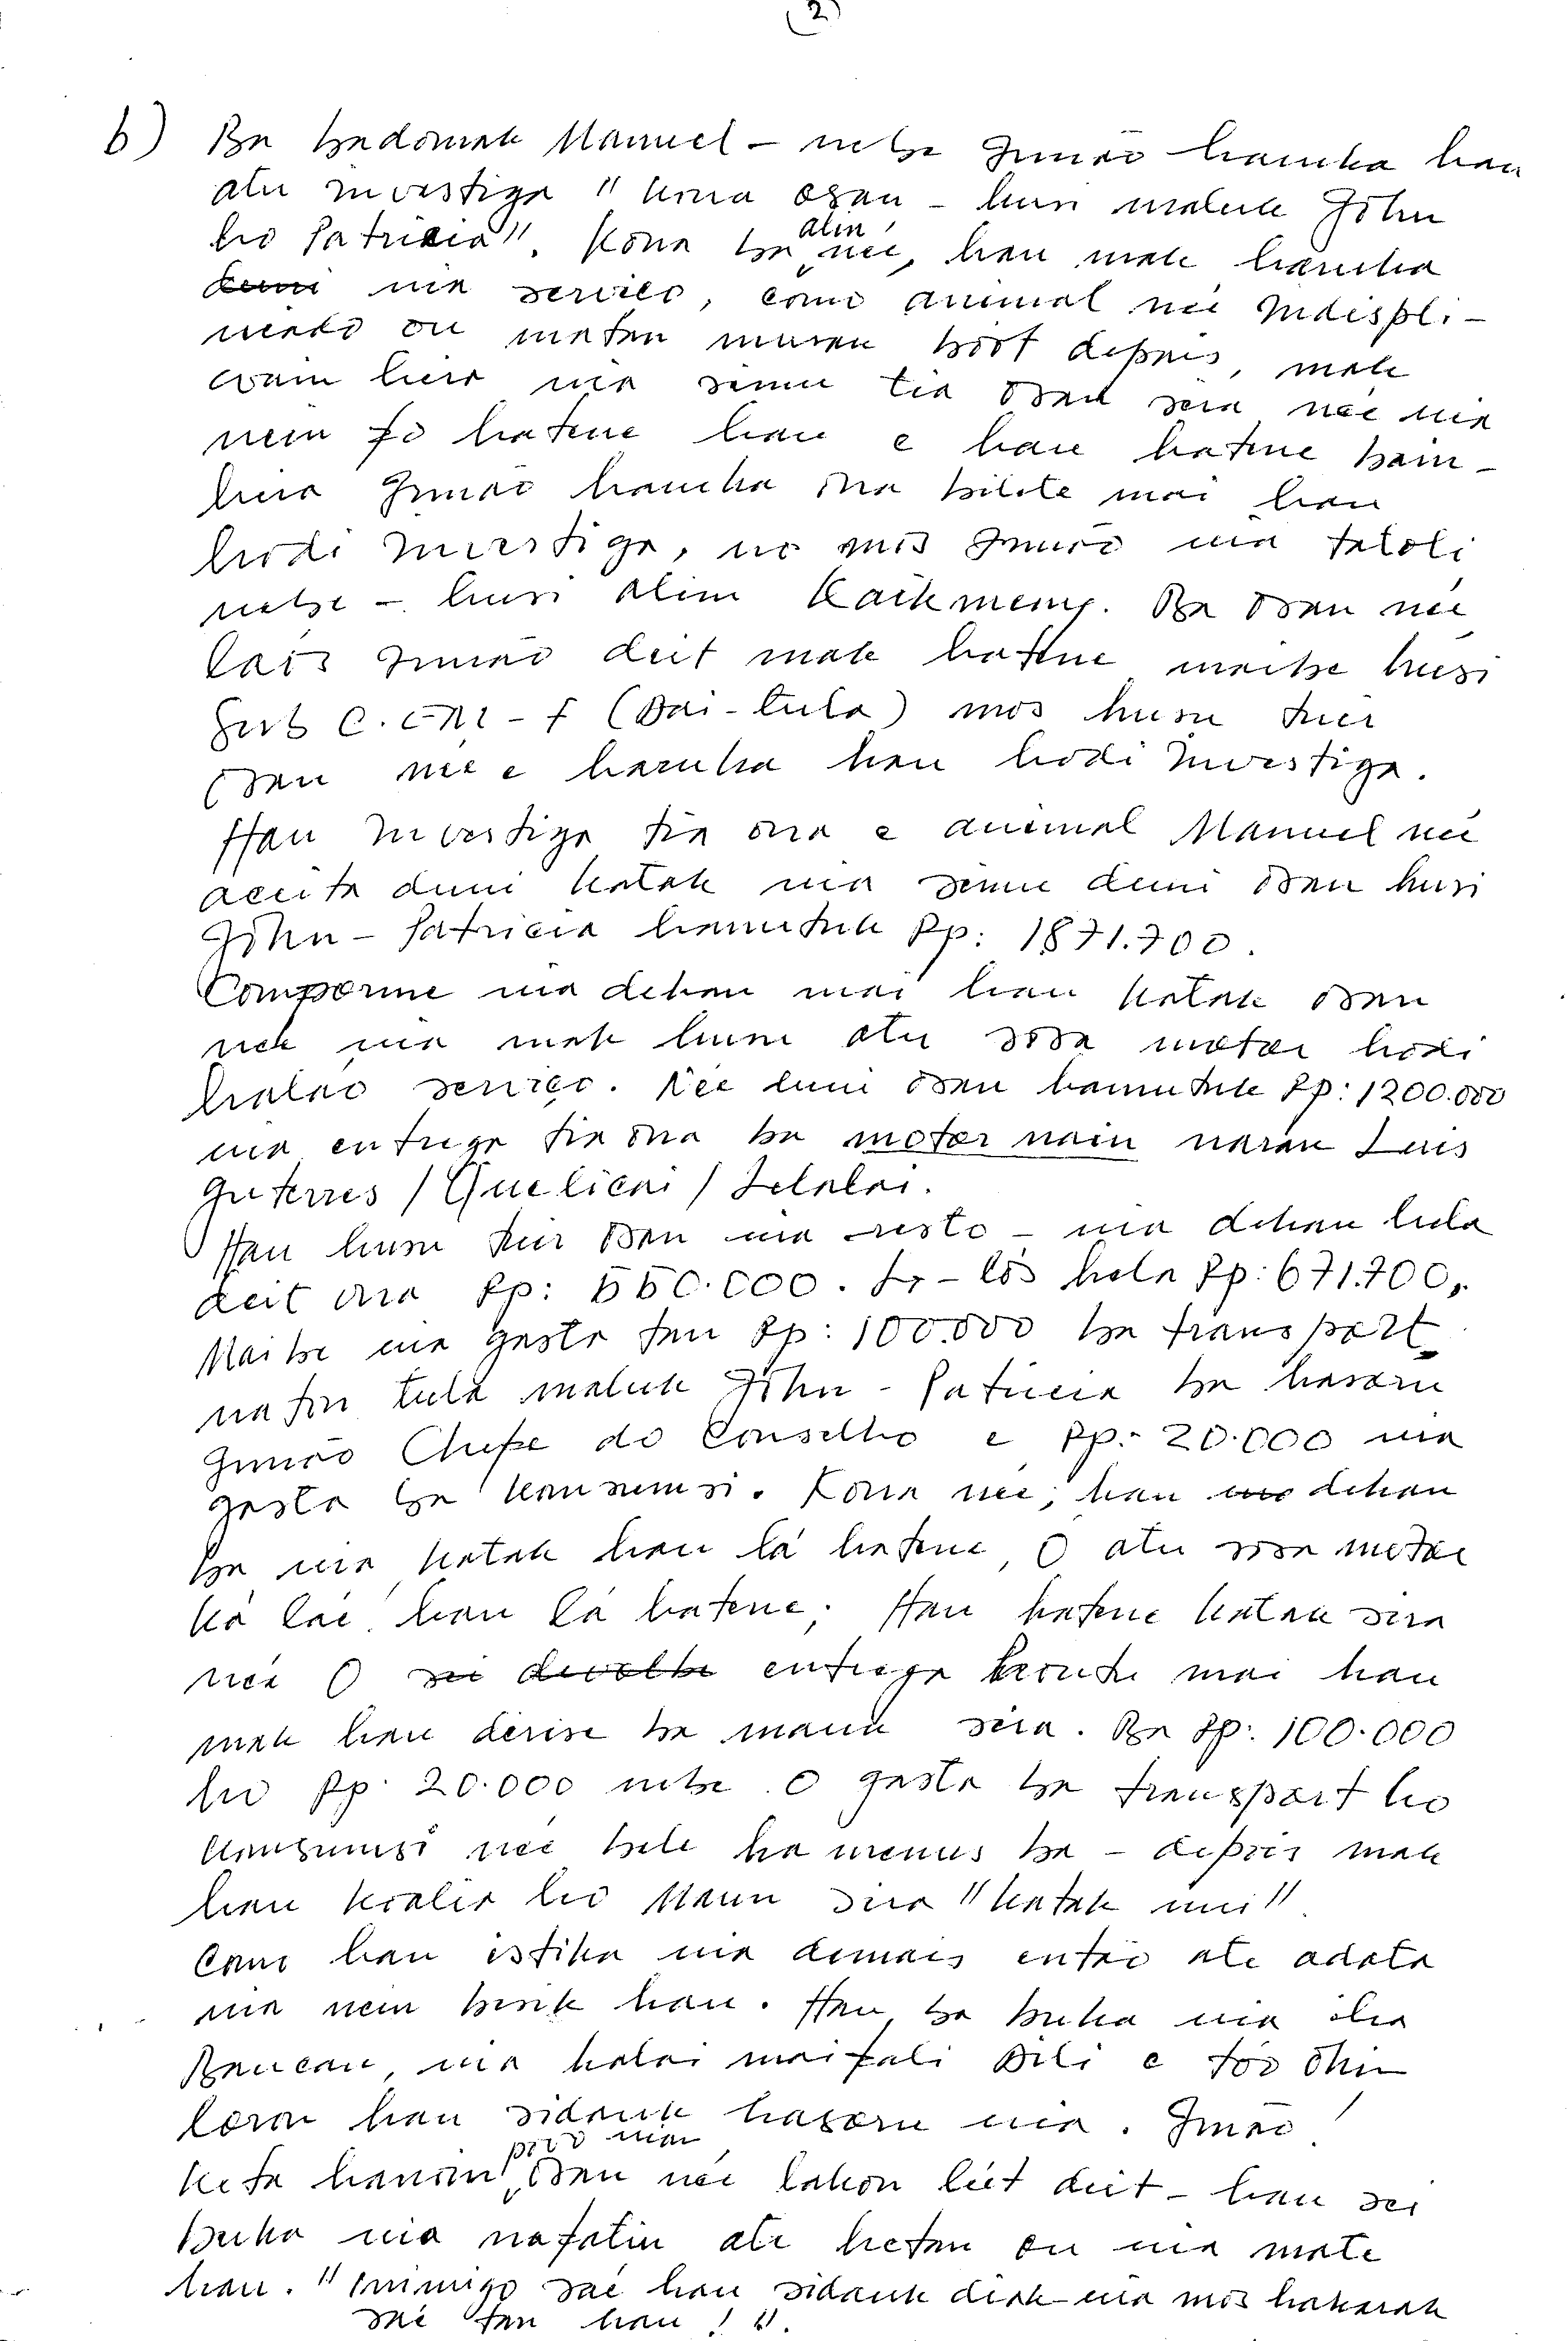 (2)
b) Ba badomak Manuel - nebe Irmão haruka hau
atu investiga "kona osan - husi maluk John
ho Patricia". Kona ba alin née, hau mak haruka
nia serviço, como animal née indispli-
nado ou matan musan boot depois, mak
wain hira nia simu tia osan sira née nia
nein fó hatene hau e hau hatene bain-
hira Irmão haruka ona bilete mai hau
hodi investiga, no mós Irmão nia
nebe - husi alin Kaikmeny. Ba osan née
lais Irmão deit mak hatene maibe husi
Sub C. (Dai-tula) mos husu tuir
osan née e haruka hau hodi investiga.
Hau investiga tia ona e animal Manuel née
aceita duni katak nia simu duni osan husi
John - Patricia hamutuk Rp: 1871.700.
Comforme nia dehan mai hau katak osan
nia mak husu atu sosa motor hodi
halao serviço. Née duni osan hamutuk Rp: 1200.000
nia entrega tia ona ba motor nain naran Luis
Guterres / Quelicai / Lelalai.
Hau husu tuir osan nia resto - nia dehan hela
deit ona Rp: 550.000. Lo-lós hela Rp: 671.700,.
Maibe nia gasta tan Rp: 100.000 ba transport
tula maluk John - Patricia ba hasoru
Irmão Chefe do Conselho e Rp: 20.000 nia
gasta ba konsumsi. Kona née, hau dehan
ba nia katak hau lá hatene, O atu sosa motor
ká lae hau lá hatene. Hau hatene katak sira
née O entrega mai hau
mak hau ba maun sira. Ba Rp: 100.000
ho Rp: 20.000 nebe O gasta ba transport ho
konsumsi née bele ha menus ba - depois mak
hau koalia ho Maun sira "katak nu'u"
Como hau nia demais então ate adata
nia nein hau. Hau ba buka nia iha
Baucau, nia halai mai fali Dili e tóo ohin
loron hau sidauk hasoru nia. Irmão!
Keta hanoin osan née lakon leet deit - hau sei
buka nia nafatin ate hetan ou nia mate
hau. "Inimigo sae hau sidauk diak nia mos hakarak
sae tan hau!".